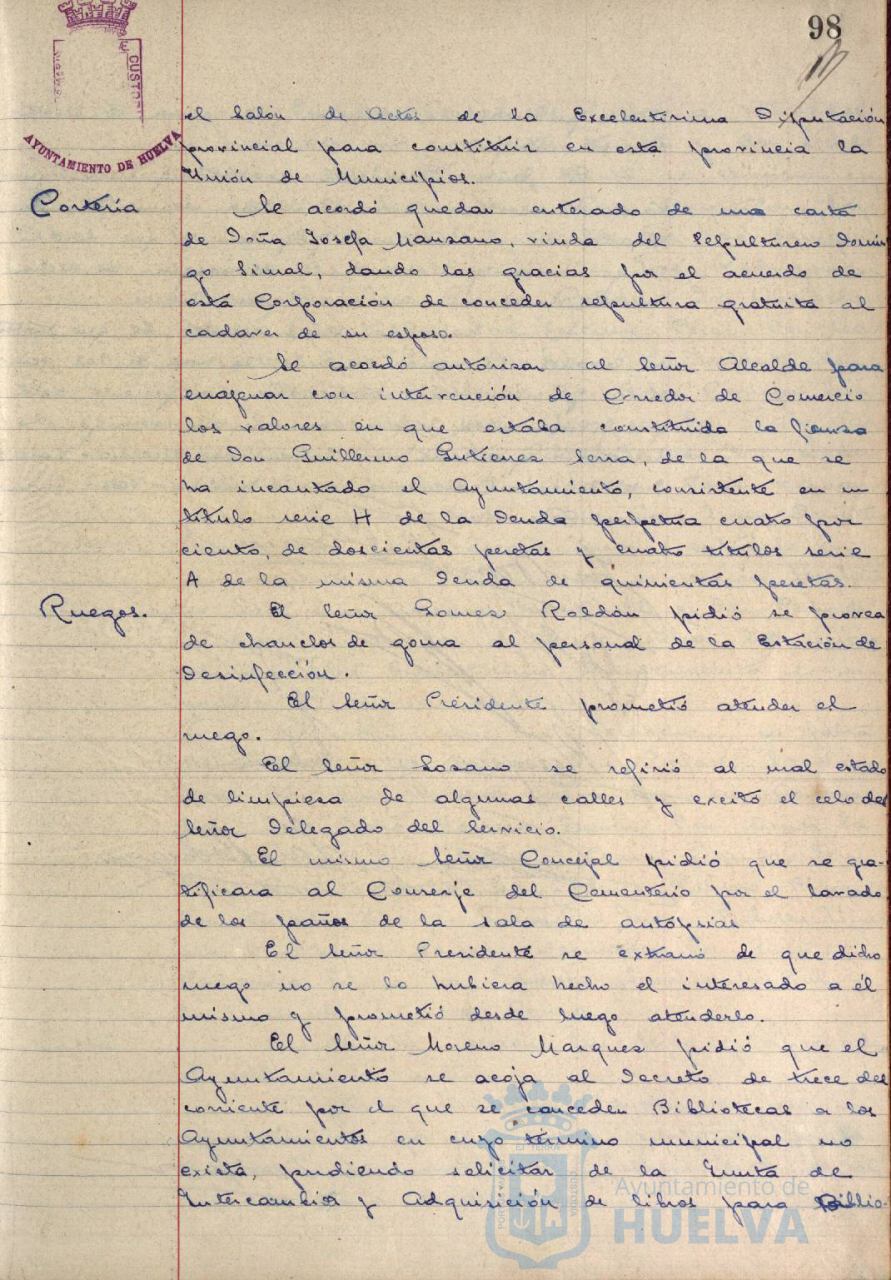 98
CUSTO
AYUNTAMIENTO DE HUELVA
el Salón de Actos de la Excelentísima Diputación
provincial para constituir en esta provincia la
Unión de Municipios.
Cortería
Se acordó quedar enterado de una carta
de Doña Josefa Manzano, viuda del Sepulturero Domin
go Simal, dando las gracias por el acuerdo de
esta Corporación de conceder sepultura gratuita al
cadaver de su esposo.
Se acordó autorizar al Señor Alcalde para
enajenar con intervención de Corredor de Comercio
los valores en que estaba constituida la fianza
de Don Guillermo Gutierrez Serra, de la que se
ha incautado el Ayuntamiento, consistente en un
título serie H de la Deuda perpetua cuatro por
ciento, de doscientas pesetas y cuatro títulos serie
A de la misma Deuda de quinientas pesetas.
Ruegos.
El Señor Gomez Roldán pidió se provea
de chanclos de goma al personal de la Estación de
Desinfección.
El Señor Presidente prometió atender el
ruego.
El Señor Lozano se refirió al mal estado
de limpieza de algunas calles y excitó el celo del
Señor Delegado del Servicio.
El mismo Señor Concejal pidió que se gra-
tificara al Conserje del Cementerio por el lavado
de los paños de la sala de autopsias
El Señor Presidente se extrañó de que dicho
ruego no se lo hubiera hecho el interesado a él
mismo y prometió desde luego atenderlo.
El Señor Moreno Marquez pidió que el
Ayuntamiento se acoja al Decreto de trece del
corriente por el que se conceden Bibliotecas a los
Ayuntamientos en cuyo término municipal no
exista, pudiendo solicitar de la Junta de
Intercambio y Adquisición de libros para Biblio-
Ayuntamiento de
HUELVA